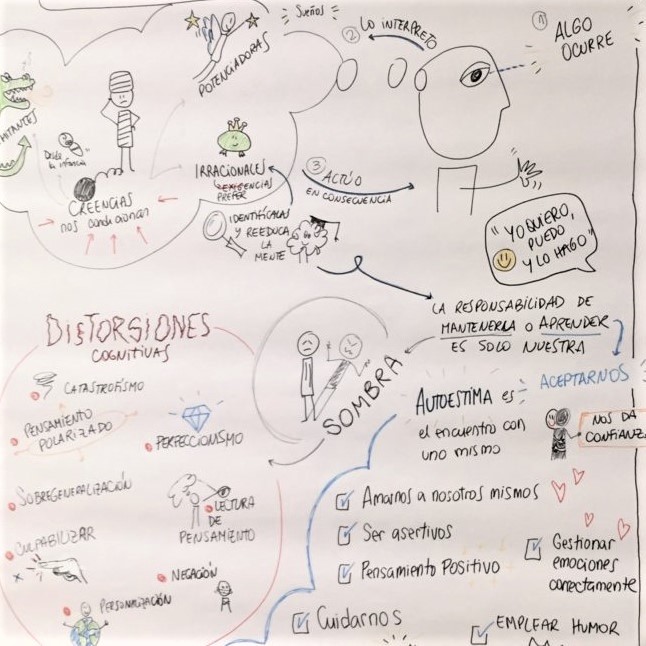 Sueños
① ALGO
OCURRE
② LO INTERPRETO
POTENCIADORAS
Desde
la infancia
IRRACIONALES
EXIGENCIAS
PREFER
③ ACTÚO
EN CONSECUENCIA
CREENCIAS
nos condicionan
IDENTIFÍCALAS
Y REEDUCA
LA
MENTE
"YO QUIERO,
PUEDO
Y LO HAGO"
LA RESPONSABILIDAD DE
MANTENERLA O APRENDER
ES SOLO NUESTRA
DISTORSIONES
COGNITIVAS
CATASTROFISMO
PENSAMIENTO
POLARIZADO
PERFECCIONISMO
SOBREGENERALIZACIÓN
LECTURA
DE
PENSAMIENTO
CULPABILIZAR
NEGACIÓN
PERSONALIZACIÓN
SOMBRA
AUTOESTIMA es
el encuentro con
uno mismo
ACEPTARNOS
NOS DA
CONFIANZ
Amarnos a nosotros mismos
Ser asertivos
Pensamiento Positivo
Gestionar
emociones
correctamente
Cuidarnos
EMPLEAR HUMOR